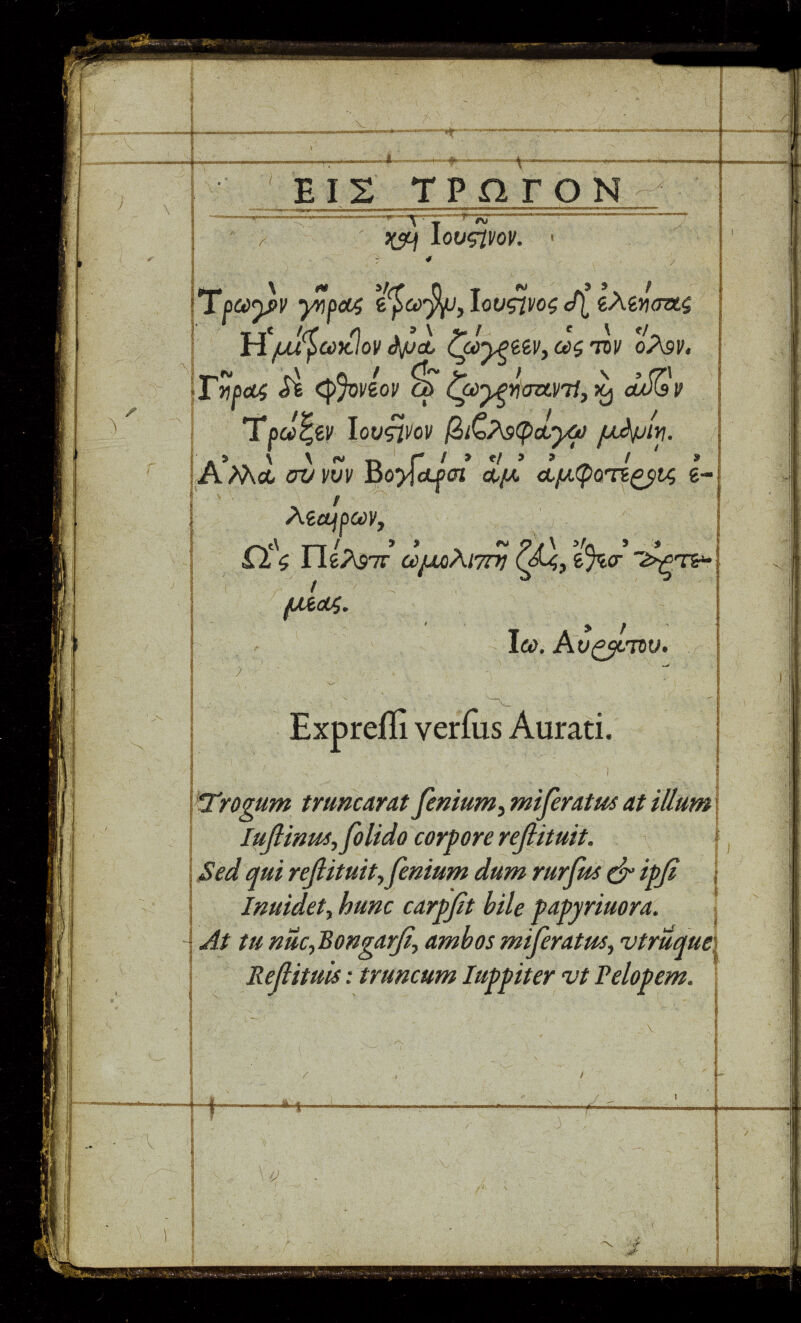 ΕΙΣ ΤΡΩΓΟΝ
καὶ Ἰουστῖνον.
Τρωγὸν γῆρας ἔτρωγεν, Ἰουστῖνος δ' ἐλεήσας
Ἡμίτρωκτον ἀνὰ ζώγρεεν, ὡς τὸν ὅλον.
Γῆρας δὲ φθονέον τῷ ζωγρήσαντι, καὶ αὐτὸν
Τρῶξεν Ἰουστῖνον βιβλοφάγῳ μανίῃ.
Ἀλλὰ σὺ νῦν Βογγάρσι ἅμ' ἀμφοτέροις ἐ-
λεαίρων,
Ὡς Πέλοπ' ὠμολιπῆ Ζεὺς, ἔθες' ἀρτε-
μέας.
Ἰω. Αὐράτου.
Expreſſi verſus Aurati.
Trogum truncarat ſenium, miſeratus at illum
Iuſtinus, ſolido corpore reſtituit.
Sed qui reſtituit, ſenium dum rurſus & ipſi
Inuidet, hunc carpſit bile papyriuora.
At tu nūc, Bongarſi, ambos miſeratus, vtrūque
Reſtituis: truncum Iuppiter vt Pelopem.